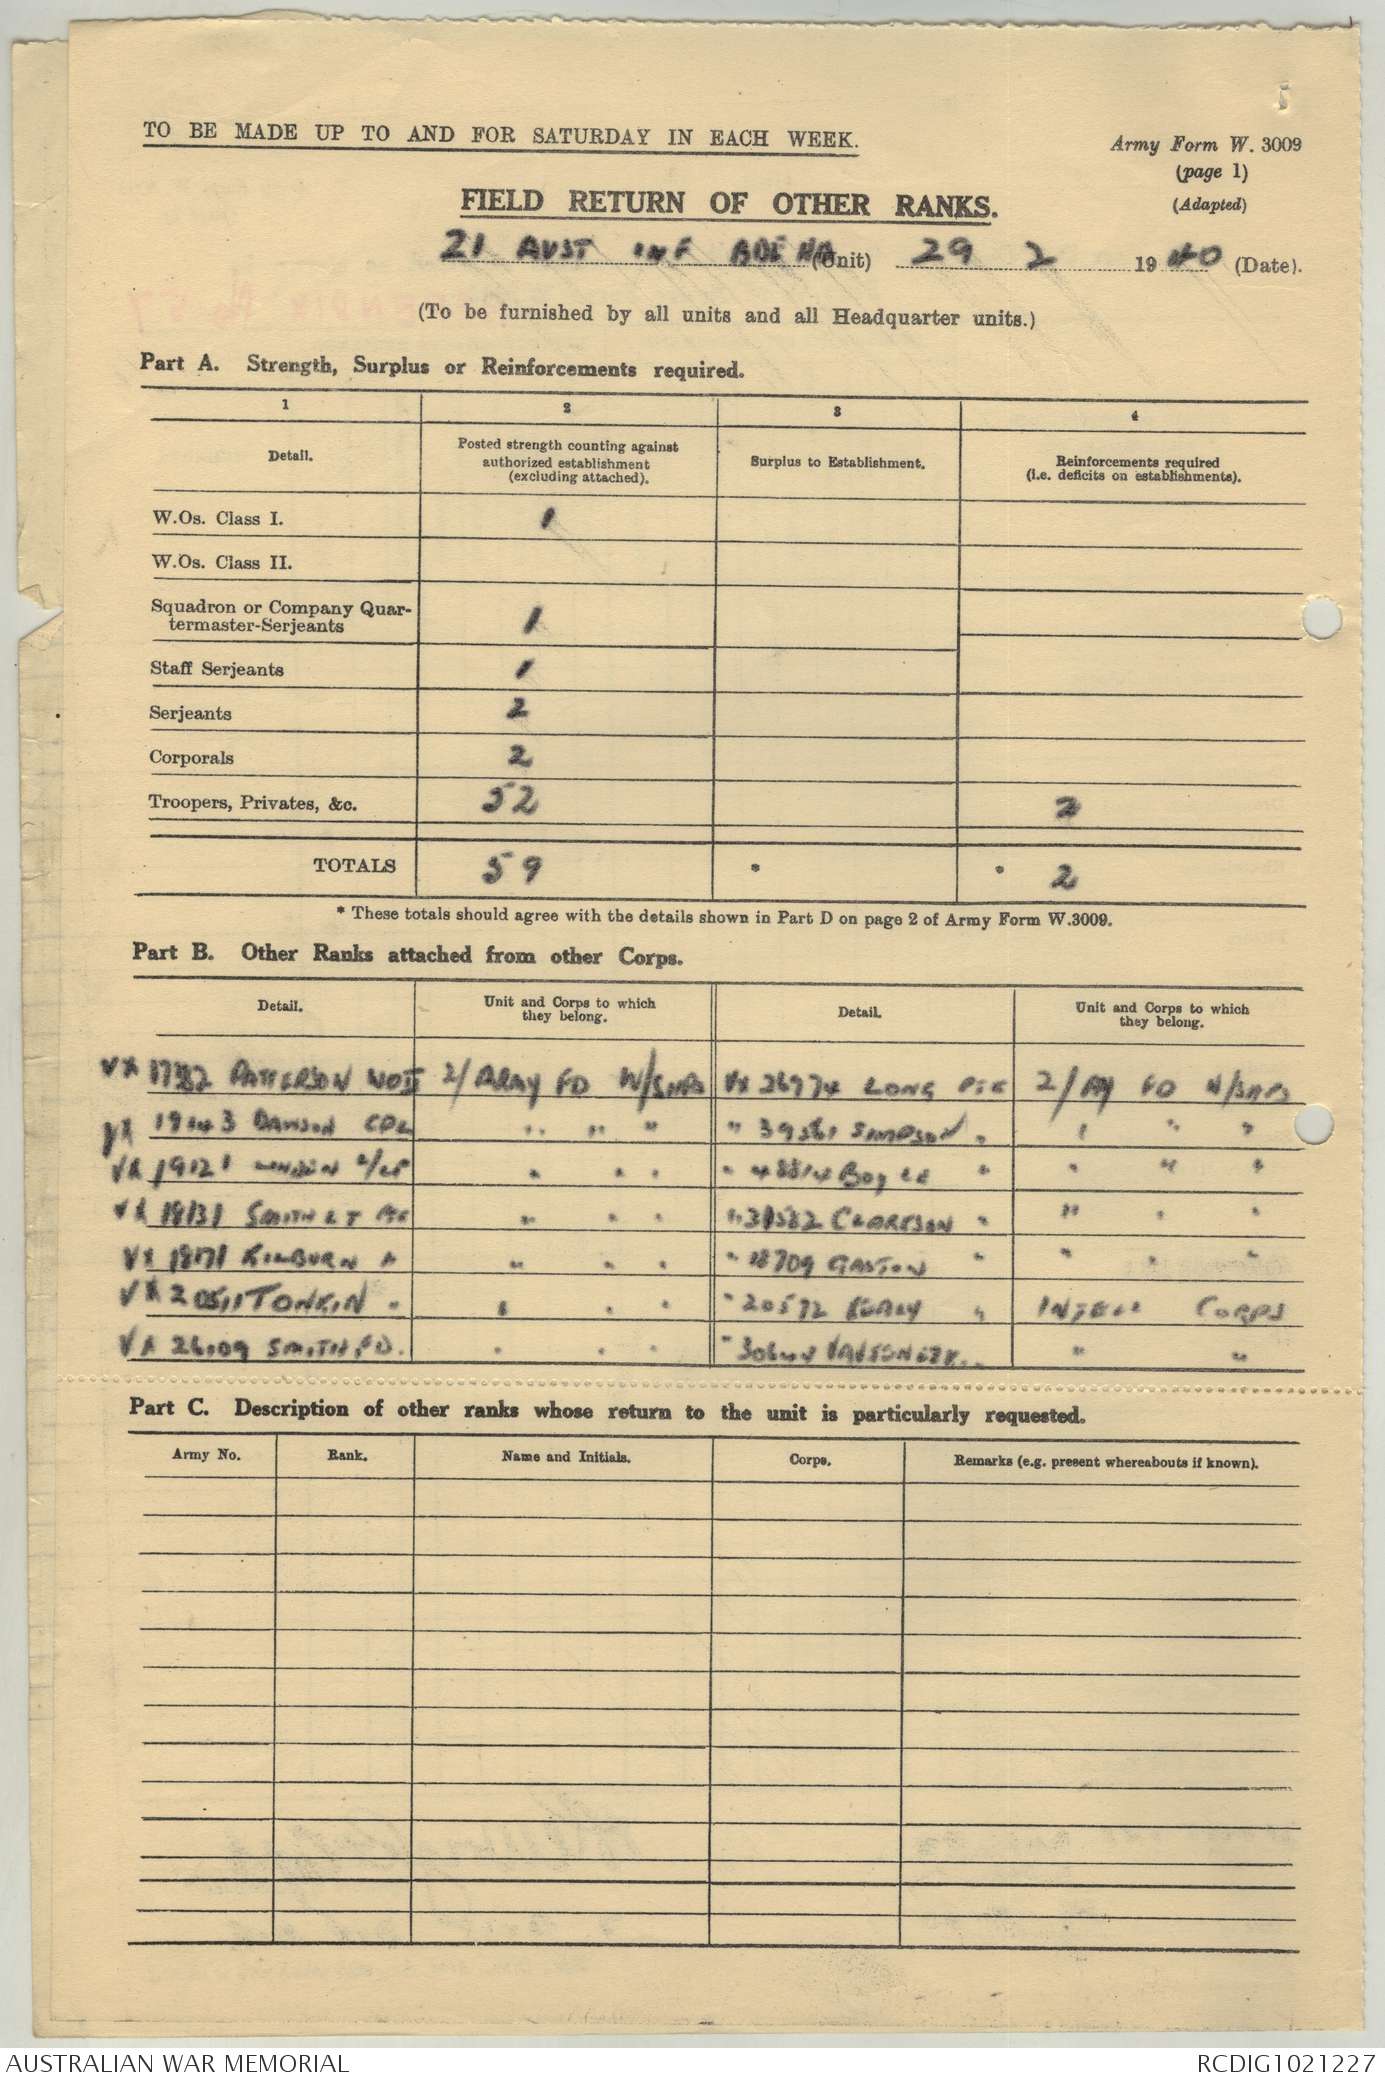 TO BE MADE UP TO AND FOR SATURDAY IN EACH WEEK.
Army Form W. 3009
(page 1)
(Adapted)
FIELD RETURN OF OTHER RANKS.
21 AUST INF BDE HQ (Unit) 29 2 1940 (Date).
(To be furnished by all units and all Headquarter units.)
Part A. Strength, Surplus or Reinforcements required.
1 2 3 4
Detail. Posted strength counting against authorized establishment (excluding attached). Surplus to Establishment. Reinforcements required (i.e. deficits on establishments).
W.Os. Class I. 1
W.Os. Class II.
Squadron or Company Quar-
termaster-Serjeants 1
Staff Serjeants 1
Serjeants 2
Corporals 2
Troopers, Privates, &c. 52 2
TOTALS 59 * * 2
* These totals should agree with the details shown in Part D on page 2 of Army Form W.3009.
Part B. Other Ranks attached from other Corps.
Detail. Unit and Corps to which they belong. Detail. Unit and Corps to which they belong.
PATTERSON WOII 2/ ARMY FD W/SHPS VX 26974 LONG PTE 2/ FD W/SHPS
DAWSON CPL " " " " SIMPSON " " " "
VX " " " " " " " "
VX 18131 SMITH PTE " " " CLARKSON " " " "
VX " " " " 18709 GASTON " " " "
VX TONKIN " " " " " 20572 " INTELL CORPS
VX SMITH " " " " " "
Part C. Description of other ranks whose return to the unit is particularly requested.
Army No. Rank. Name and Initials. Corps. Remarks (e.g. present whereabouts if known).
AUSTRALIAN WAR MEMORIAL RCDIG1021227